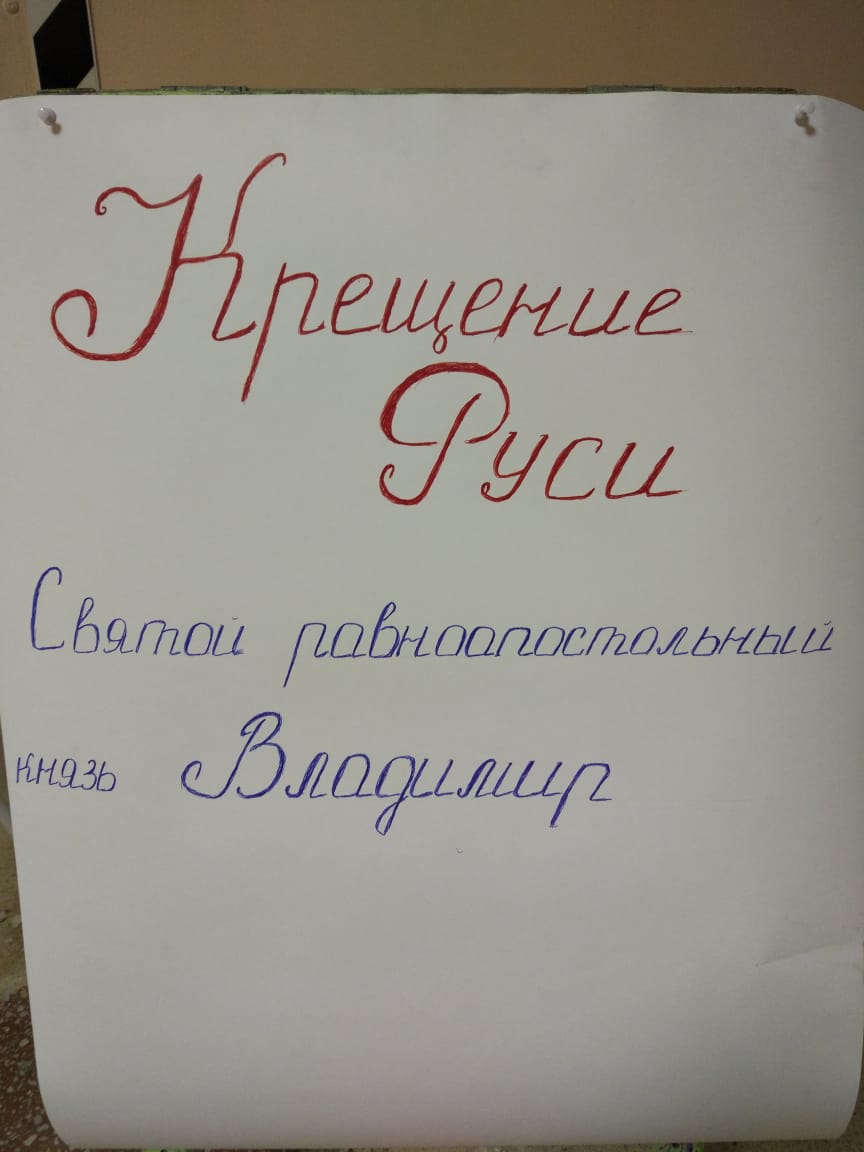 Крещение
Руси
Святой равноапостольный
князь Владимир